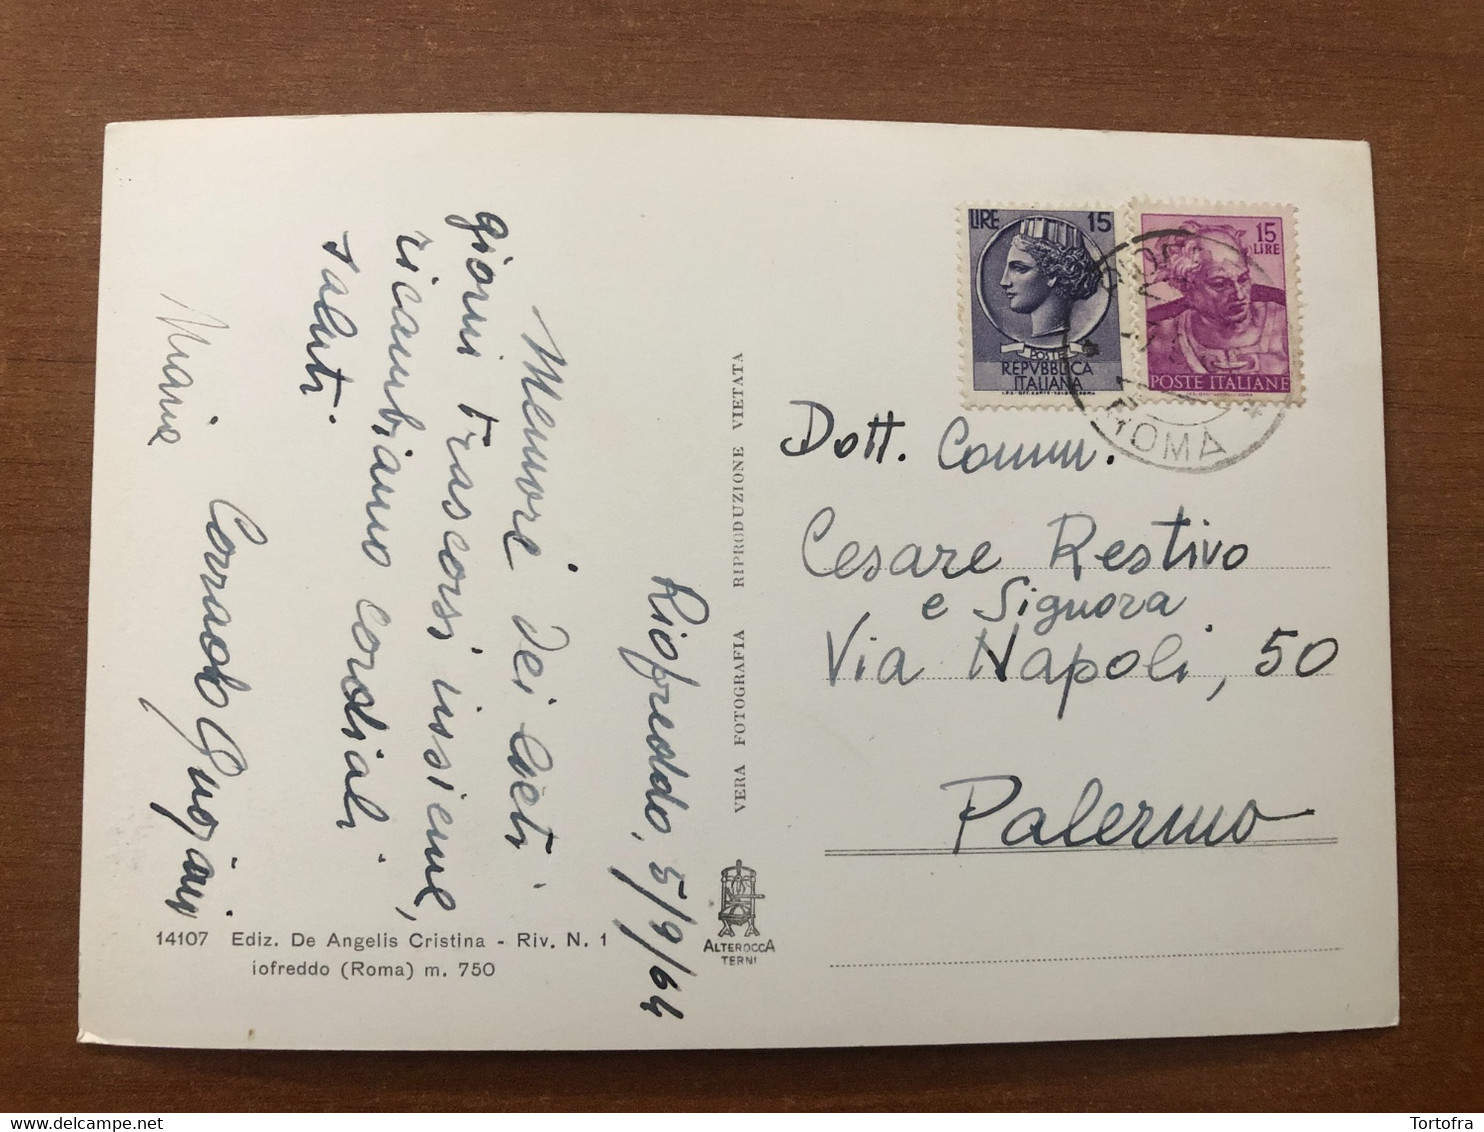 Riofreddo, 5/9/64
Memori dei lieti
giorni trascorsi insieme,
ricambiamo cordiali
saluti
Corrado
Maria
VERA FOTOGRAFIA RIPRODUZIONE VIETATA
ALTEROCCA
TERNI
14107 Ediz. De Angelis Cristina - Riv. N. 1
iofreddo (Roma) m. 750
LIRE 15
POSTE
REPVBBLICA
ITALIANA
15
LIRE
POSTE ITALIANE
ROMA
Dott. Comm.
Cesare Restivo
e Signora
Via Napoli, 50
Palermo
Tortofra